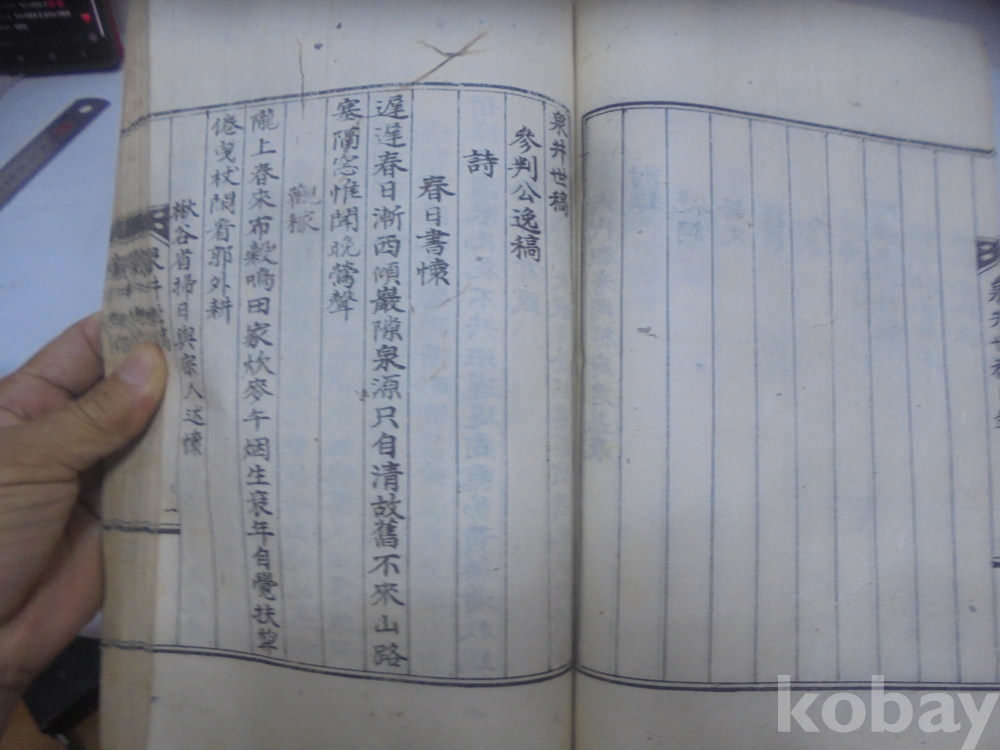 泉井世稿
參判公逸稿
詩
春日書懷
遲遲春日漸西傾巖隙泉源只自清故舊不來山路
塞隔窓惟聞晚鶯聲
觀稼
隴上春來布穀鳴田家炊麥午烟生衰年自覺扶犂
倦曳杖閑看郭外耕
楸谷省掃日與宗人述懷
泉井世稿
一
kobay